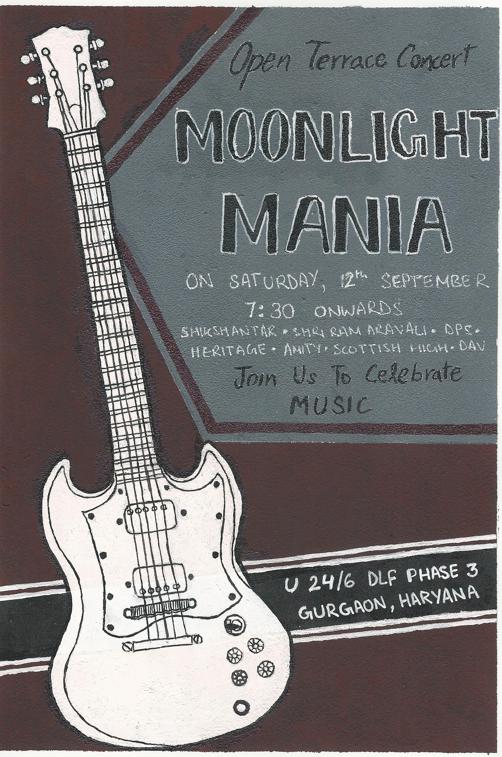 Open Terrace Concert
MOONLIGHT
MANIA
ON SATURDAY, 12th SEPTEMBER
7:30 ONWARDS
SHIKSHANTAR • SHRI RAM ARAVALI • DPS •
HERITAGE • AMITY • SCOTTISH HIGH • DAV
Join Us To Celebrate
MUSIC
U 24/6 DLF PHASE 3
GURGAON, HARYANA